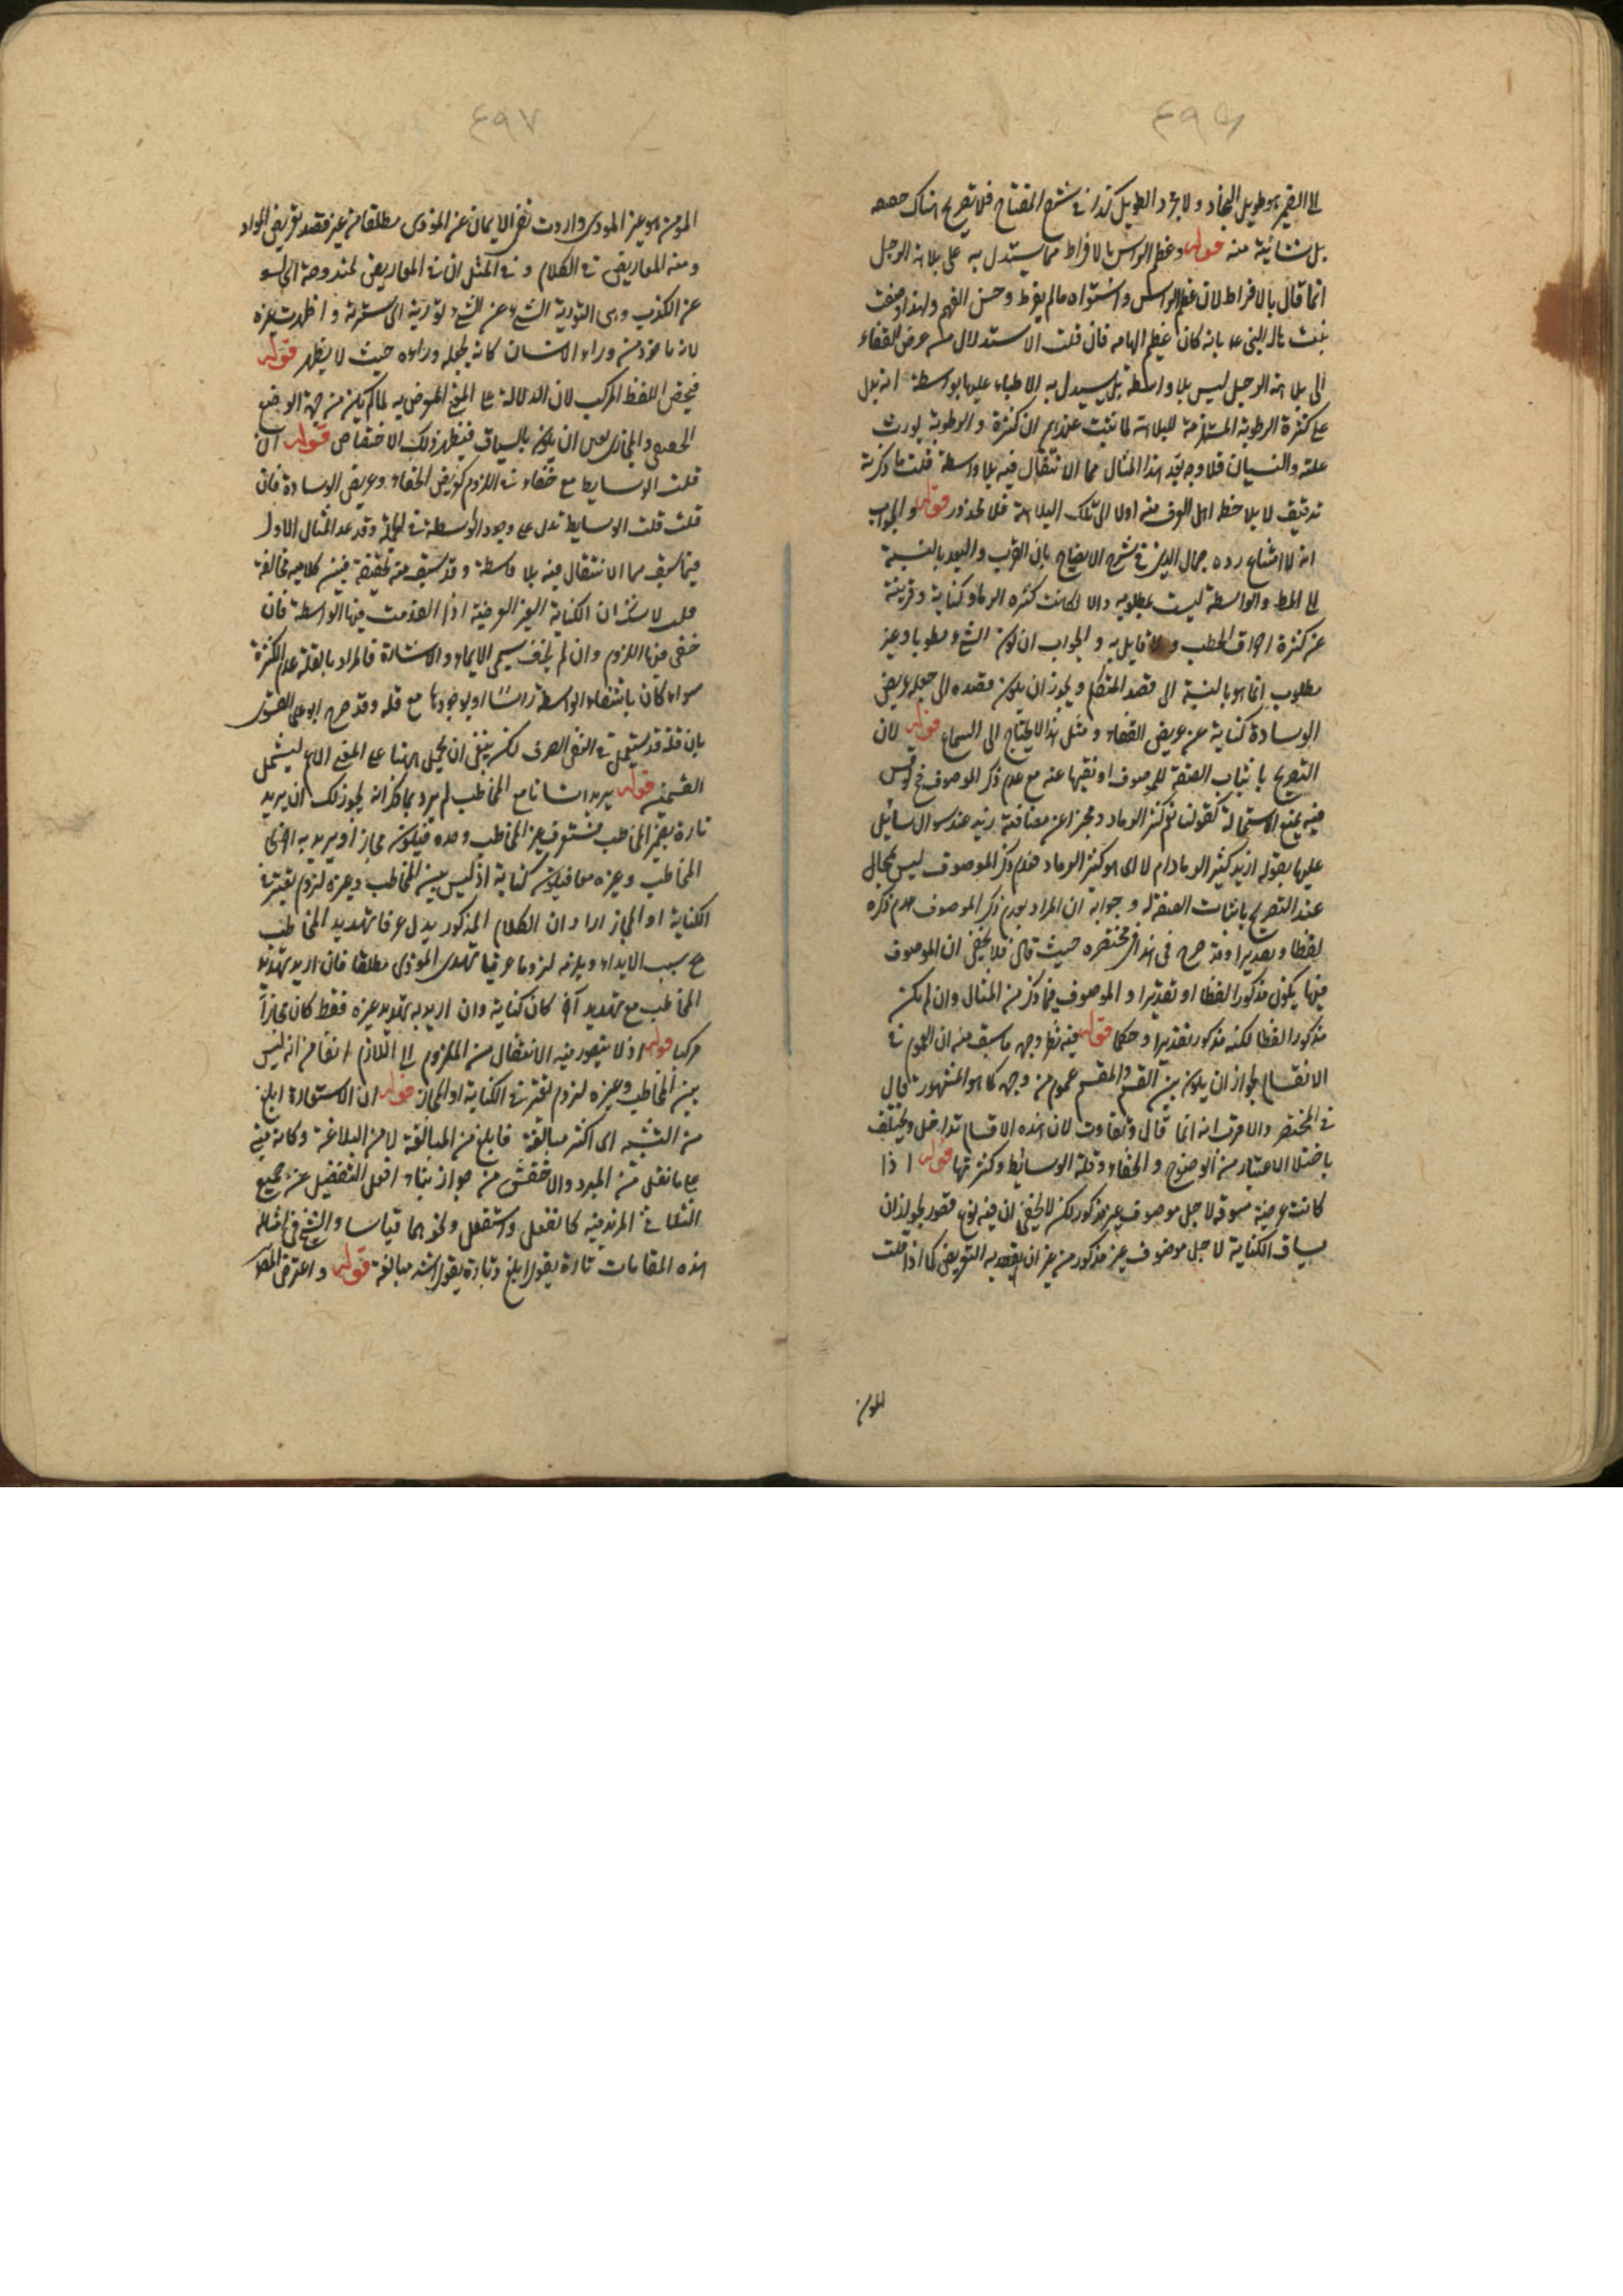 ٤٩٦
الى القيم هو طويل النجاد ولا يجرد الطويل كذا في شرح المفتاح فلا تصريح هناك حقيقة
بل شائبة منه قوله وعظم الراس بالافراط مما يستدل به على بلاهة الرجل
انما قال بالافراط لان عظم الراس واستواه ما لم يفرط وحسن الفهم ولهذا وصفت
بانه كان عظيم الهامه فان قلت الاستدلال من عرض القفاء
الى بلاهة الرجل ليس بلا واسطة بل يستدل به الاطباء عليها بواسطة انه يدل
على كثرة الرطوبة المستلزمة للبلاهة لما ثبت عندهم ان كثرة الرطوبة يورث
علته والنسيان فلا وجه لعد هذا المثال مما الانتقال فيه بلا واسطة قلت ما ذكرته
تدقيق لا يلاحظ اهل العرف منه اولا الى تلك البلاهة فلا محذور قوله والجواب
انه لا امتناع رده جمال الدين في شرح الايضاح بان القرب والبعد بالنسبة
الى المط والواسطة ليست بمطلوبه والا لكانت كثرة الرماد كناية وقرينة
عن كثرة احراق الحطب ولا قايل به والجواب ان كون الشئ مطلوبا وغير
مطلوب انما هو بالنسبة الى قصد المتكلم ويجوز ان يكون مقصده الى جعل عريض
الوسادة كناية عن عريض القفاء ومثل هذا لا يحتاج الى السماع قوله لان
التصريح باثبات الصفة للموصوف او نفيها عنه مع عدم ذكر الموصوف
فيه يمنع الاستحالة كقولنا نعم كثير الرماد مخبرا عن مضافية زيد عند سوال سائل
عليها بقوله ازيد كثير الرماد ام لا اى هو كثير الرماد فعدم ذكر الموصوف ليس بمحال
عند التصريح باثبات الصفة له وجوابه ان المراد بعدم ذكر الموصوف عدم ذكره
لفظا وتقديرا وقد صرح في هذا في مختصره حيث قال فلا يخفى ان الموصوف
فيها يكون مذكورا لفظا او تقديرا والموصوف فيما ذكر من المثال وان لم يكن
مذكورا لفظا لكنه مذكور تقديرا وحكما قوله فيه نظر وجهه ما سبق منه ان العموم في
الانقسام لجواز ان يكون بين القسم والمقسم عموم من وجه كما هو المشهور قال
في المختصر والاقرب انه انما قال وتفاوت لان هذه الاقسام تداخل ويختلف
باختلاف الاعتبار من الوضوح والخفاء وقلة الوسائط وكثرتها قوله اذا
كانت عرضية مسوقة لاجل موصوف غير مذكور لكن لا يخفى ان فيه نوع قصور لجواز ان
يساق الكناية لاجل موصوف غير مذكور من غير ان يقصد به التعريض كما اذا قلت
المؤمن
٤٩٧
المؤمن هو غير الموذى واردت نفى الايمان عن الموذى مطلقا من غير قصد تعريض المراد
ومنه المعاريض في الكلام وفي المثل ان في المعاريض لمندوحة اى لسعة
عن الكذب وهى التورية الشئ عن الشئ وتورية اى سترته واظهرت غيره
لانه ماخوذ من وراء الانسان كانه يجعله وراءه حيث لا يظهر قوله
فيختص اللفظ المركب لان الدلالة على المعنى المعرض به لما لم يكن من جهة الوضع
الحقيقى والمجازى ان يكون بالسياق فيظهر ذلك الاختصاص قوله ان
قلت الوسايط مع خفاء في اللزوم كعريض القفاء وعريض الوسادة فان
قلت قلت الوسايط تدل على وجود الواسطة في الجملة وقد عد المثال الاول
فيما سبق مما الانتقال فيه بلا واسطة وقد سبق منه تحقيقه فبين كلاميه مخالفة
قلت لا شك ان الكناية الغير العرضية اذا انعدمت فيها الواسطة فان
خفى فيها اللزوم وان لم يخف يسمى الايماء والاشارة فالمراد بالقلة عدم الكثرة
سواء كان بانتفاء الواسطة راسا او بوجودها مع قلة وقد صرح ابو على الفسوى
بان قلة قد يستعمل في النفى الصرف لكن ينبغى ان يحمل ههنا على المعنى الاعم ليشمل
القسمين قوله يريد انسانا مع المخاطب لم يرد بما ذكر انه يجوز ذلك ان يريد
تارة بضمير المخاطب غير المخاطب وحده فيكون مجازا ويريد به اخرى
المخاطب وغيره معا فيكون كناية اذ ليس بين المخاطب وغيره لزوم يعتبر في
الكناية او المجاز اراد ان الكلام المذكور يدل عرفا تهديد المخاطب
بسبب الايذاء ويلزمه لزوما عرفيا تهديد الموذى مطلقا فان اريد تهديد
المخاطب مع تهديد آخر كان كناية وان اريد به تهديد غيره فقط كان مجازا
مركبا قوله اذ لا يتصور فيه الانتقال من الملزوم الى اللازم انفا من انه ليس
بين المخاطب وغيره لزوم يعتبر في الكناية او المجاز قوله ان الاستعارة ابلغ
من التشبيه اى اكثر مبالغة فابلغ من المبالغة لا من البلاغة وكانه مبنى
على ما نقل من المبرد والاخفش من جواز بناء افعل التفضيل عن جميع
الثلاثى المزيد فيه كانفعل واستفعل ونحوهما قياسا والشيخ في امثال
هذه المقامات تارة يقول ابلغ وتارة يقول اشد مبالغة قوله واعترض المص